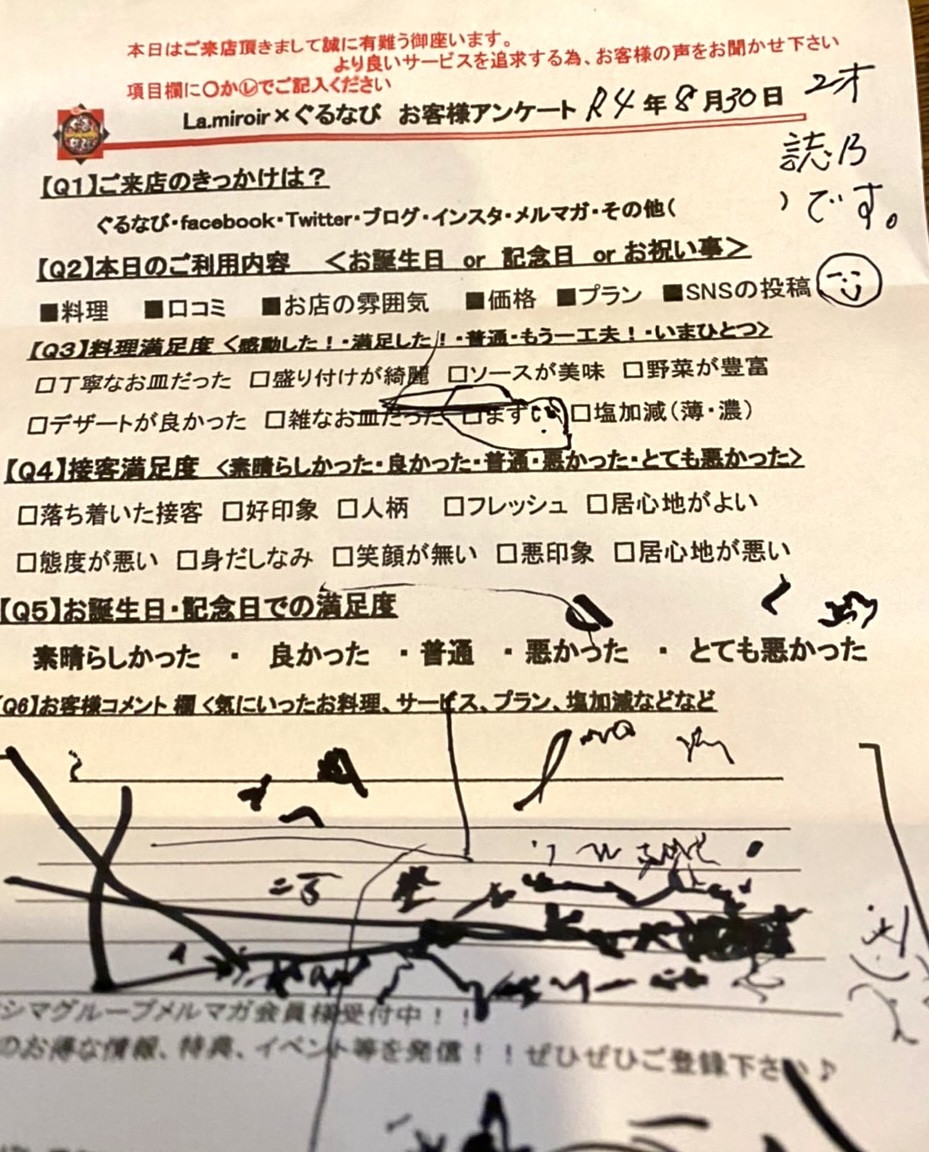 本日はご来店頂きまして誠に有難う御座います。
より良いサービスを追求する為、お客様の声をお聞かせ下さい
項目欄に〇か㋹でご記入ください
La.miroir×ぐるなび お客様アンケート R4年8月30日 2才
です。
【Q1】ご来店のきっかけは？
ぐるなび・facebook・Twitter・ブログ・インスタ・メルマガ・その他( )
【Q2】本日のご利用内容 <お誕生日 or 記念日 or お祝い事>
■料理 ■口コミ ■お店の雰囲気 ■価格 ■プラン ■SNSの投稿
【Q3】料理満足度 <感動した！・満足した！・普通・もう一工夫！・いまひとつ>
□丁寧なお皿だった □盛り付けが綺麗 □ソースが美味 □野菜が豊富
□デザートが良かった □雑なお皿だった □まず □塩加減(薄・濃)
【Q4】接客満足度 <素晴らしかった・良かった・普通・悪かった・とても悪かった>
□落ち着いた接客 □好印象 □人柄 □フレッシュ □居心地がよい
□態度が悪い □身だしなみ □笑顔が無い □悪印象 □居心地が悪い
【Q5】お誕生日・記念日での満足度
素晴らしかった ・ 良かった ・普通 ・悪かった ・ とても悪かった
Q6】お客様コメント 欄 <気にいったお料理、サービス、プラン、塩加減などなど
シマグループメルマガ会員様受付中！！
のお得な情報、特典、イベント等を発信！！ぜひぜひご登録下さい♪